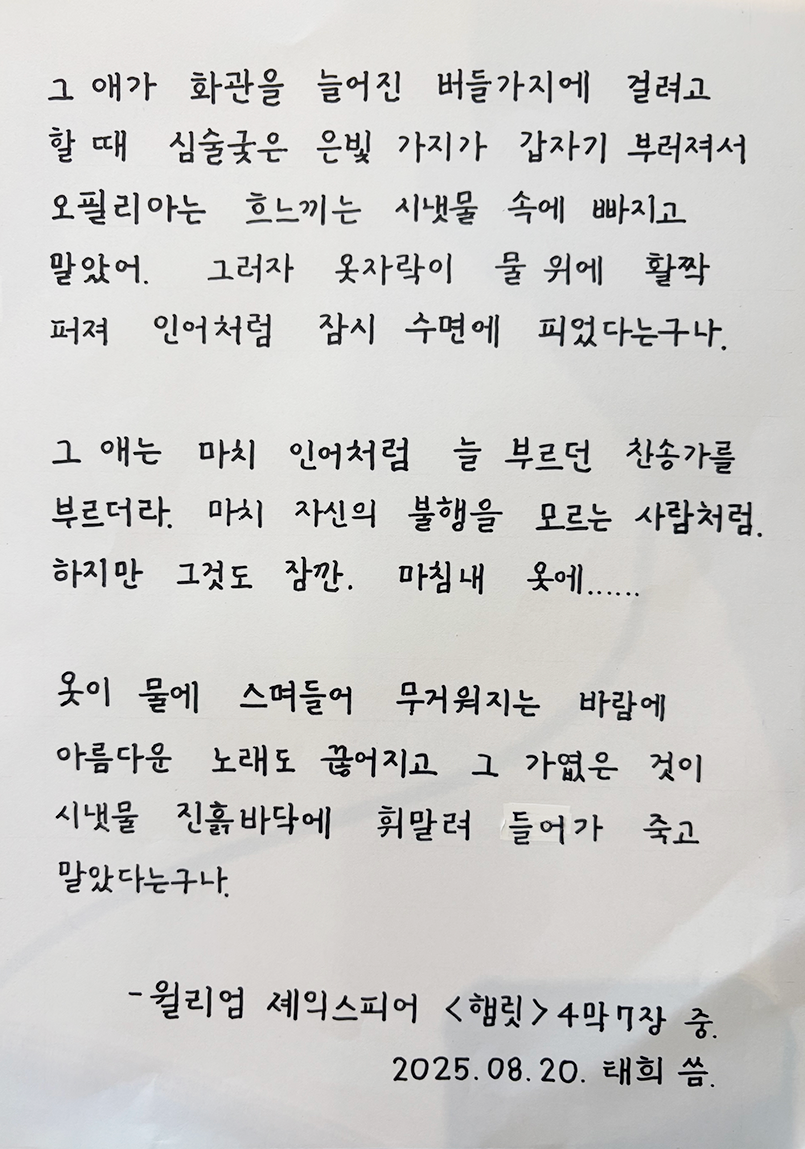 그 애가 화관을 늘어진 버들가지에 걸려고
할 때 심술궂은 은빛 가지가 갑자기 부러져서
오필리아는 흐느끼는 시냇물 속에 빠지고
말았어. 그러자 옷자락이 물 위에 활짝
퍼져 인어처럼 잠시 수면에 피었다는구나.
그 애는 마치 인어처럼 늘 부르던 찬송가를
부르더라. 마치 자신의 불행을 모르는 사람처럼.
하지만 그것도 잠깐. 마침내 옷에......
옷이 물에 스며들어 무거워지는 바람에
아름다운 노래도 끊어지고 그 가엾은 것이
시냇물 진흙바닥에 휘말려 들어가 죽고
말았다는구나.
-윌리엄 셰익스피어 <햄릿> 4막 7장 중.
2025.08.20. 태희 씀.